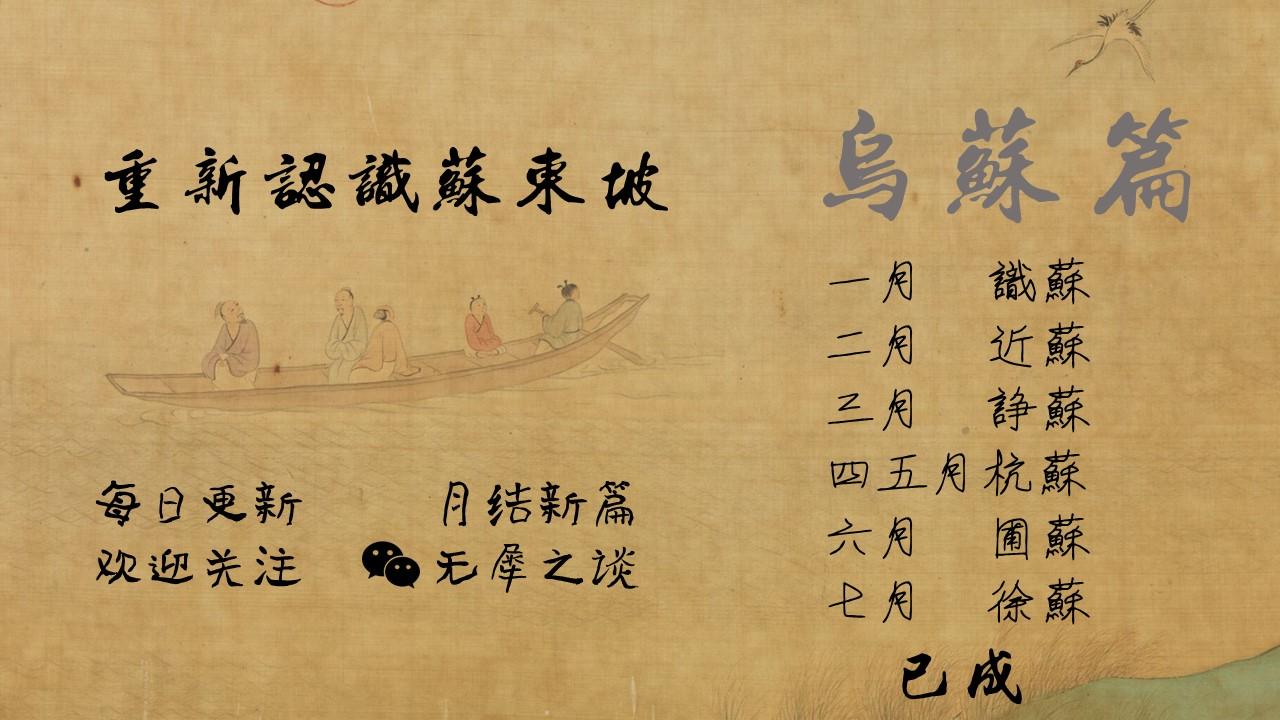 重新認識蘇東坡
每日更新 月结新篇
欢迎关注 无犀之谈
烏蘇篇
一月 識蘇
二月 近蘇
三月 諍蘇
四五月 杭蘇
六月 圃蘇
七月 徐蘇
已成